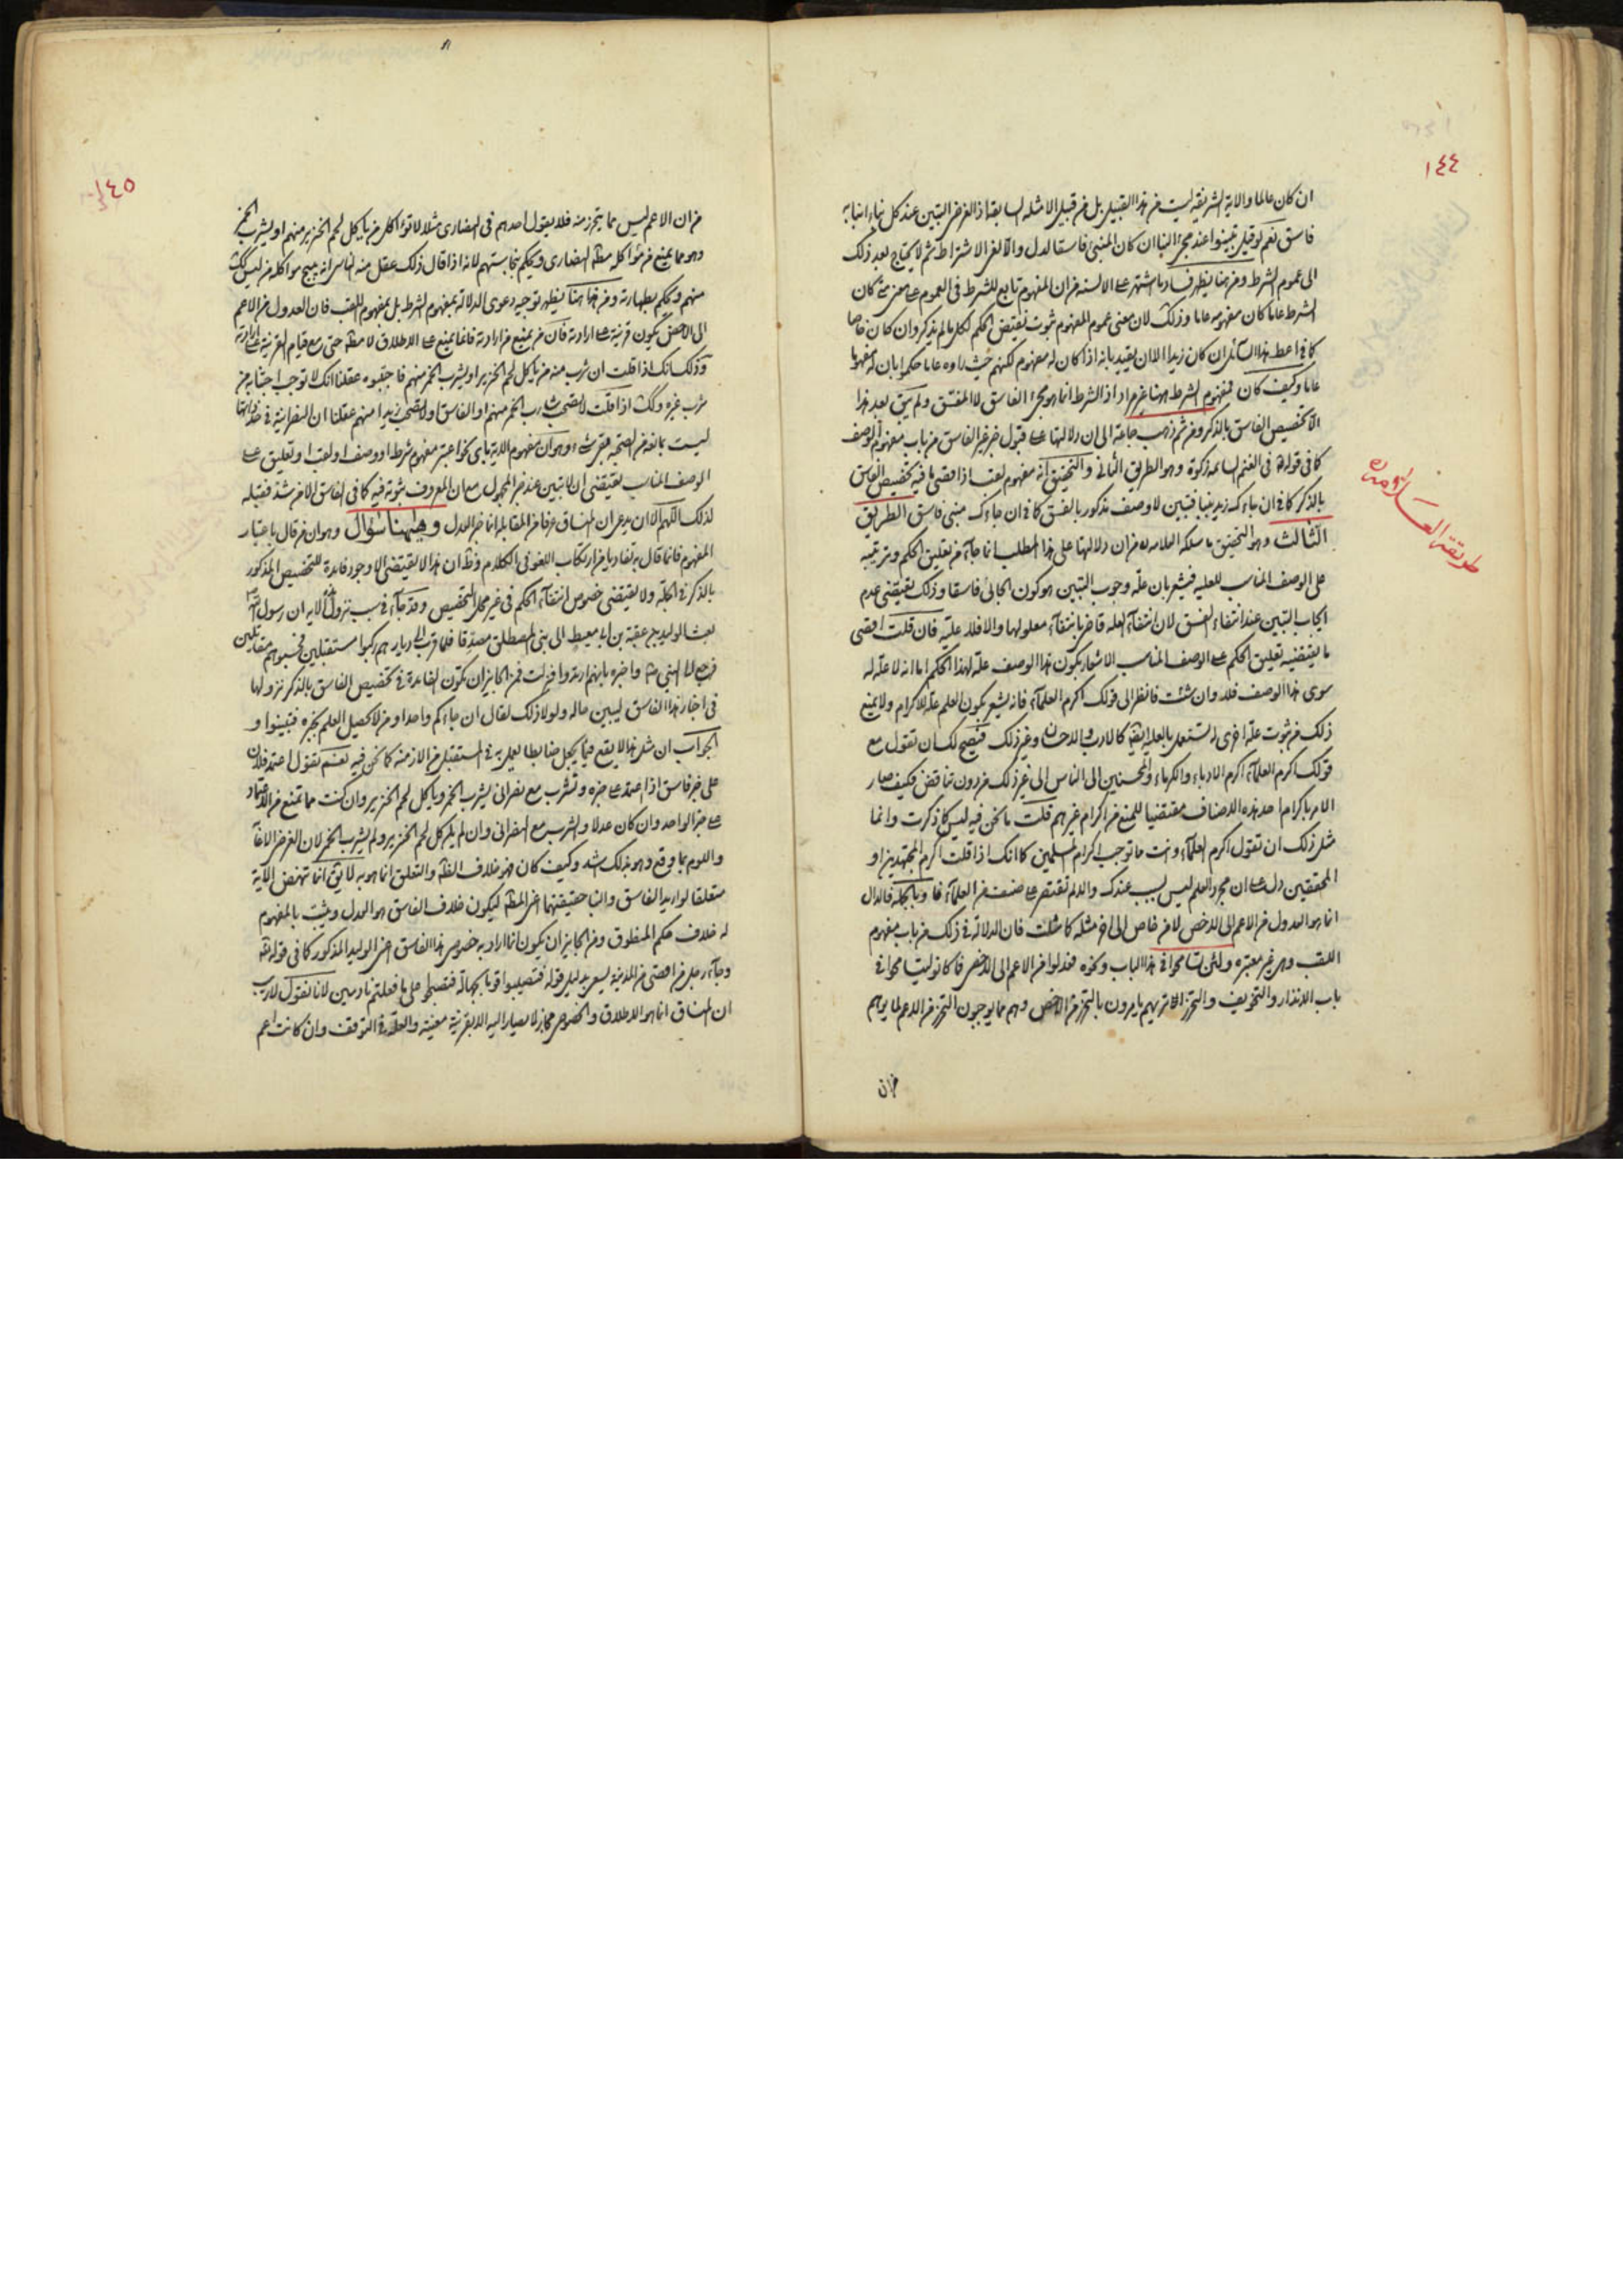 ١٤٤
ان كان عالما والاية الشريفة ليست من هذا القبيل بل من قبيل الامثلة السابقة اذ الغرض التبين عند كل نباء انباء به
فاسق نعم لو قيل تبينوا عند مجئ النبا ان كان المنبئ فاسقا لدل والا لغى الاشتراط ثم لا يحتاج بعد ذلك
الى عموم الشرط ومن هنا يظهر فساد ما اشتهر على الالسنة من ان المفهوم تابع للشرط في العموم على معنى متى كان
الشرط عاما كان مفهومه عاما وذلك لان معنى عموم المفهوم ثبوت نقيض الحكم لكل ما لم يذكر وان كان خاصا
كما في اعط هذا السائل ان كان زيدا الا ان يقيد بانه اذا كان له مفهوم لكنهم حيث راوه عاما حكموا بان له مفهوما
عاما وكيف كان فمفهوم الشرط ههنا غير مراد اذ الشرط انما هو مجئ الفاسق لا الفسق ولم يبق بعد هذا
الا تخصيص الفاسق بالذكر ومن ثم ذهب جماعة الى ان دلالتها على قبول خبر غير الفاسق من باب مفهوم الوصف
كما في قوله في الغنم السائمة زكوة وهو الطريق الثاني والتحقيق انه مفهوم لقب اذ اقصى ما فيه تخصيص الفاسق
بالذكر كما في ان جاءك زيد بنبا فتبين لا وصف مذكور بالفسق كما في ان جاءك منبئ فاسق الطريق
الثالث وهو التحقيق ما سلكه العلامه من ان دلالتها على هذا المطلب انما جاء من تعليق الحكم وترتيبه
على الوصف المناسب للعلية فيشعر بان علة وجوب التبين هو كون الجائى فاسقا وذلك يقتضى عدم
ايجاب التبين عند انتفاء الفسق لان انتفاء العلة قاض بانتفاء معلولها والا فلا علية فان قلت اقصى
ما يقتضيه تعليق الحكم على الوصف المناسب الاشعار بكون هذا الوصف علة لهذا الحكم اما انه لا علة له
سوى هذا الوصف فلا وان شئت فانظر الى قولك اكرم العلماء فانه يشعر بكون العلم علة للاكرام ولا يمنع
ذلك من ثبوت علة اخرى تستعمل بالعلية ايضا كالادب والاحسان وغير ذلك فيصح لك ان تقول مع
قولك اكرم العلماء اكرم الادباء والكرماء والمحسنين الى الناس الى غير ذلك من دون تناقض فكيف صار
الامر باكرام احد هذه الاصناف مقتضيا للمنع من اكرام غيرهم قلت ما نحن فيه ليس كما ذكرت وانما
مثل ذلك ان تقول اكرم العلماء وانت ما توجب اكرام المسلمين كما انك اذا قلت اكرم المجتهدين او
المحققين دل على ان مجرد العلم ليس بسبب عندك والا لم تقتصر على صنف من العلماء وبالجملة فالدال
انما هو العدول من الاعم الى الاخص لا من خاص الى اخر مثله كما مثلت فان الدلالة في ذلك من باب مفهوم
اللقب وهى غير معتبرة ولئن تسامحوا في هذا الباب ونحوه فعدلوا من الاعم الى الاخص فما كانوا ليتسامحوا في
باب الانذار والتخويف والتحرز الا تريهم يامرون بالتحرز من الاخص وهم مما يوجبون التحرز من الاعم لما يوهم
من ان
طريقة العلامه
١٤٥
من ان الاعم ليس مما يتحرز منه فلا يقول احدهم في النصارى مثلا لا تؤاكل من ياكل لحم الخنزير منهم او يشرب الخمر
وهو مما يمنع من مؤاكلة مطلق النصارى ويحكم بنجاستهم لانه اذا قال ذلك عقل منه الناس انه يبيح مواكلة من ليس كك
منهم ويحكم بطهارته ومن هنا يظهر توجيه دعوى الدلالة بمفهوم الشرط بل بمفهوم اللقب فان العدول من الاعم
الى الاخص يكون قرينة على ارادته فان من يمنع من ارادته فانما يمنع على الاطلاق لا مطلقا حتى مع قيام القرينة على ارادته
وذلك انك اذا قلت ان شرب منه من ياكل لحم الخنزير او يشرب الخمر منهم فاجتنبوه عقلنا انك لا توجب اجتنابه من
شرب غيره وكك اذا قلت لا تصحب شارب الخمر منهم او الفاسق او لا تصحب زيدا منهم عقلنا ان النصرانية في حد ذاتها
ليست بمانعة من الصحبة بقى شئ وهو ان مفهوم الاية باى نحو اعتبر مفهوم شرط او وصف او لقب او تعليق على
الوصف المناسب يقتضى ان لا تبين عند خبر المجهول مع ان المعروف ثبوته فيه كما في الفاسق الا من شذ فقبله
لذلك اللهم الا ان يدعى ان المنساق عرفا من المقابلة انما خبر العدل وههنا سؤال وهو ان من قال باعتبار
المفهوم فانما قال به تفاديا من ارتكاب اللغو في الكلام وظ ان هذا لا يقتضى الا وجود فائدة للتخصيص المذكور
بالذكر في الجملة ولا يقتضى خصوص انتفاء الحكم في غير محل التخصيص وقد جاء في سبب نزول الاية ان رسول الله
بعث الوليد بن عقبة بن ابى معيط الى بنى المصطلق مصدقا فلما قرب الى ديارهم ركبوا مستقبلين فحسبوهم مقاتلين
فرجع الى النبي واخبره بانهم ارتدوا فنزلت فمن الجايز ان تكون الفائدة في تخصيص الفاسق بالذكر نزولها
في اخبار هذا الفاسق ليبين حاله ولولا ذلك لقال ان جاءكم واحد او من لا يحصل العلم بخبره فتبينوا و
الجواب ان مثل هذا لا يقع فيما يجعل ضابطا يعمل به في المستقبل من الازمنة كما نحن فيه نعم تقول اعتمد فلان
على خبر فاسق اذا اعتمد على خبره وتشرب مع نصرانى يشرب الخمر وياكل لحم الخنزير وان كنت مما تمنع من الاعتماد
على خبر الواحد وان كان عدلا والشرب مع النصرانى وان لم ياكل لحم الخنزير ولم يشرب الخمر لان الغرض
واللوم بما وقع وهو بذلك اشد وكيف كان فهو خلاف الظ والتعلق انما هو به لا يق انما تنهض الاية
متعلقا لو اريد الفاسق والنبا حقيقتهما اعنى المطلق ليكون خلاف الفاسق هو العدل ويثبت بالمفهوم
له خلاف حكم المنطوق ومن الجايز ان يكون انما اراد به خصوص هذا الفاسق اعنى الوليد المذكور كما في قوله
وجاء رجل من اقصى المدينة يسعى بدليل قوله فتصيبوا قوما بجهالة فتصبحوا على ما فعلتم نادمين لانا نقول لا ريب
ان المنساق انما هو الاطلاق والخصوص مجاز لا يصار اليه الا بقرينة معينة والعلة في التوقف وان كانت اعم